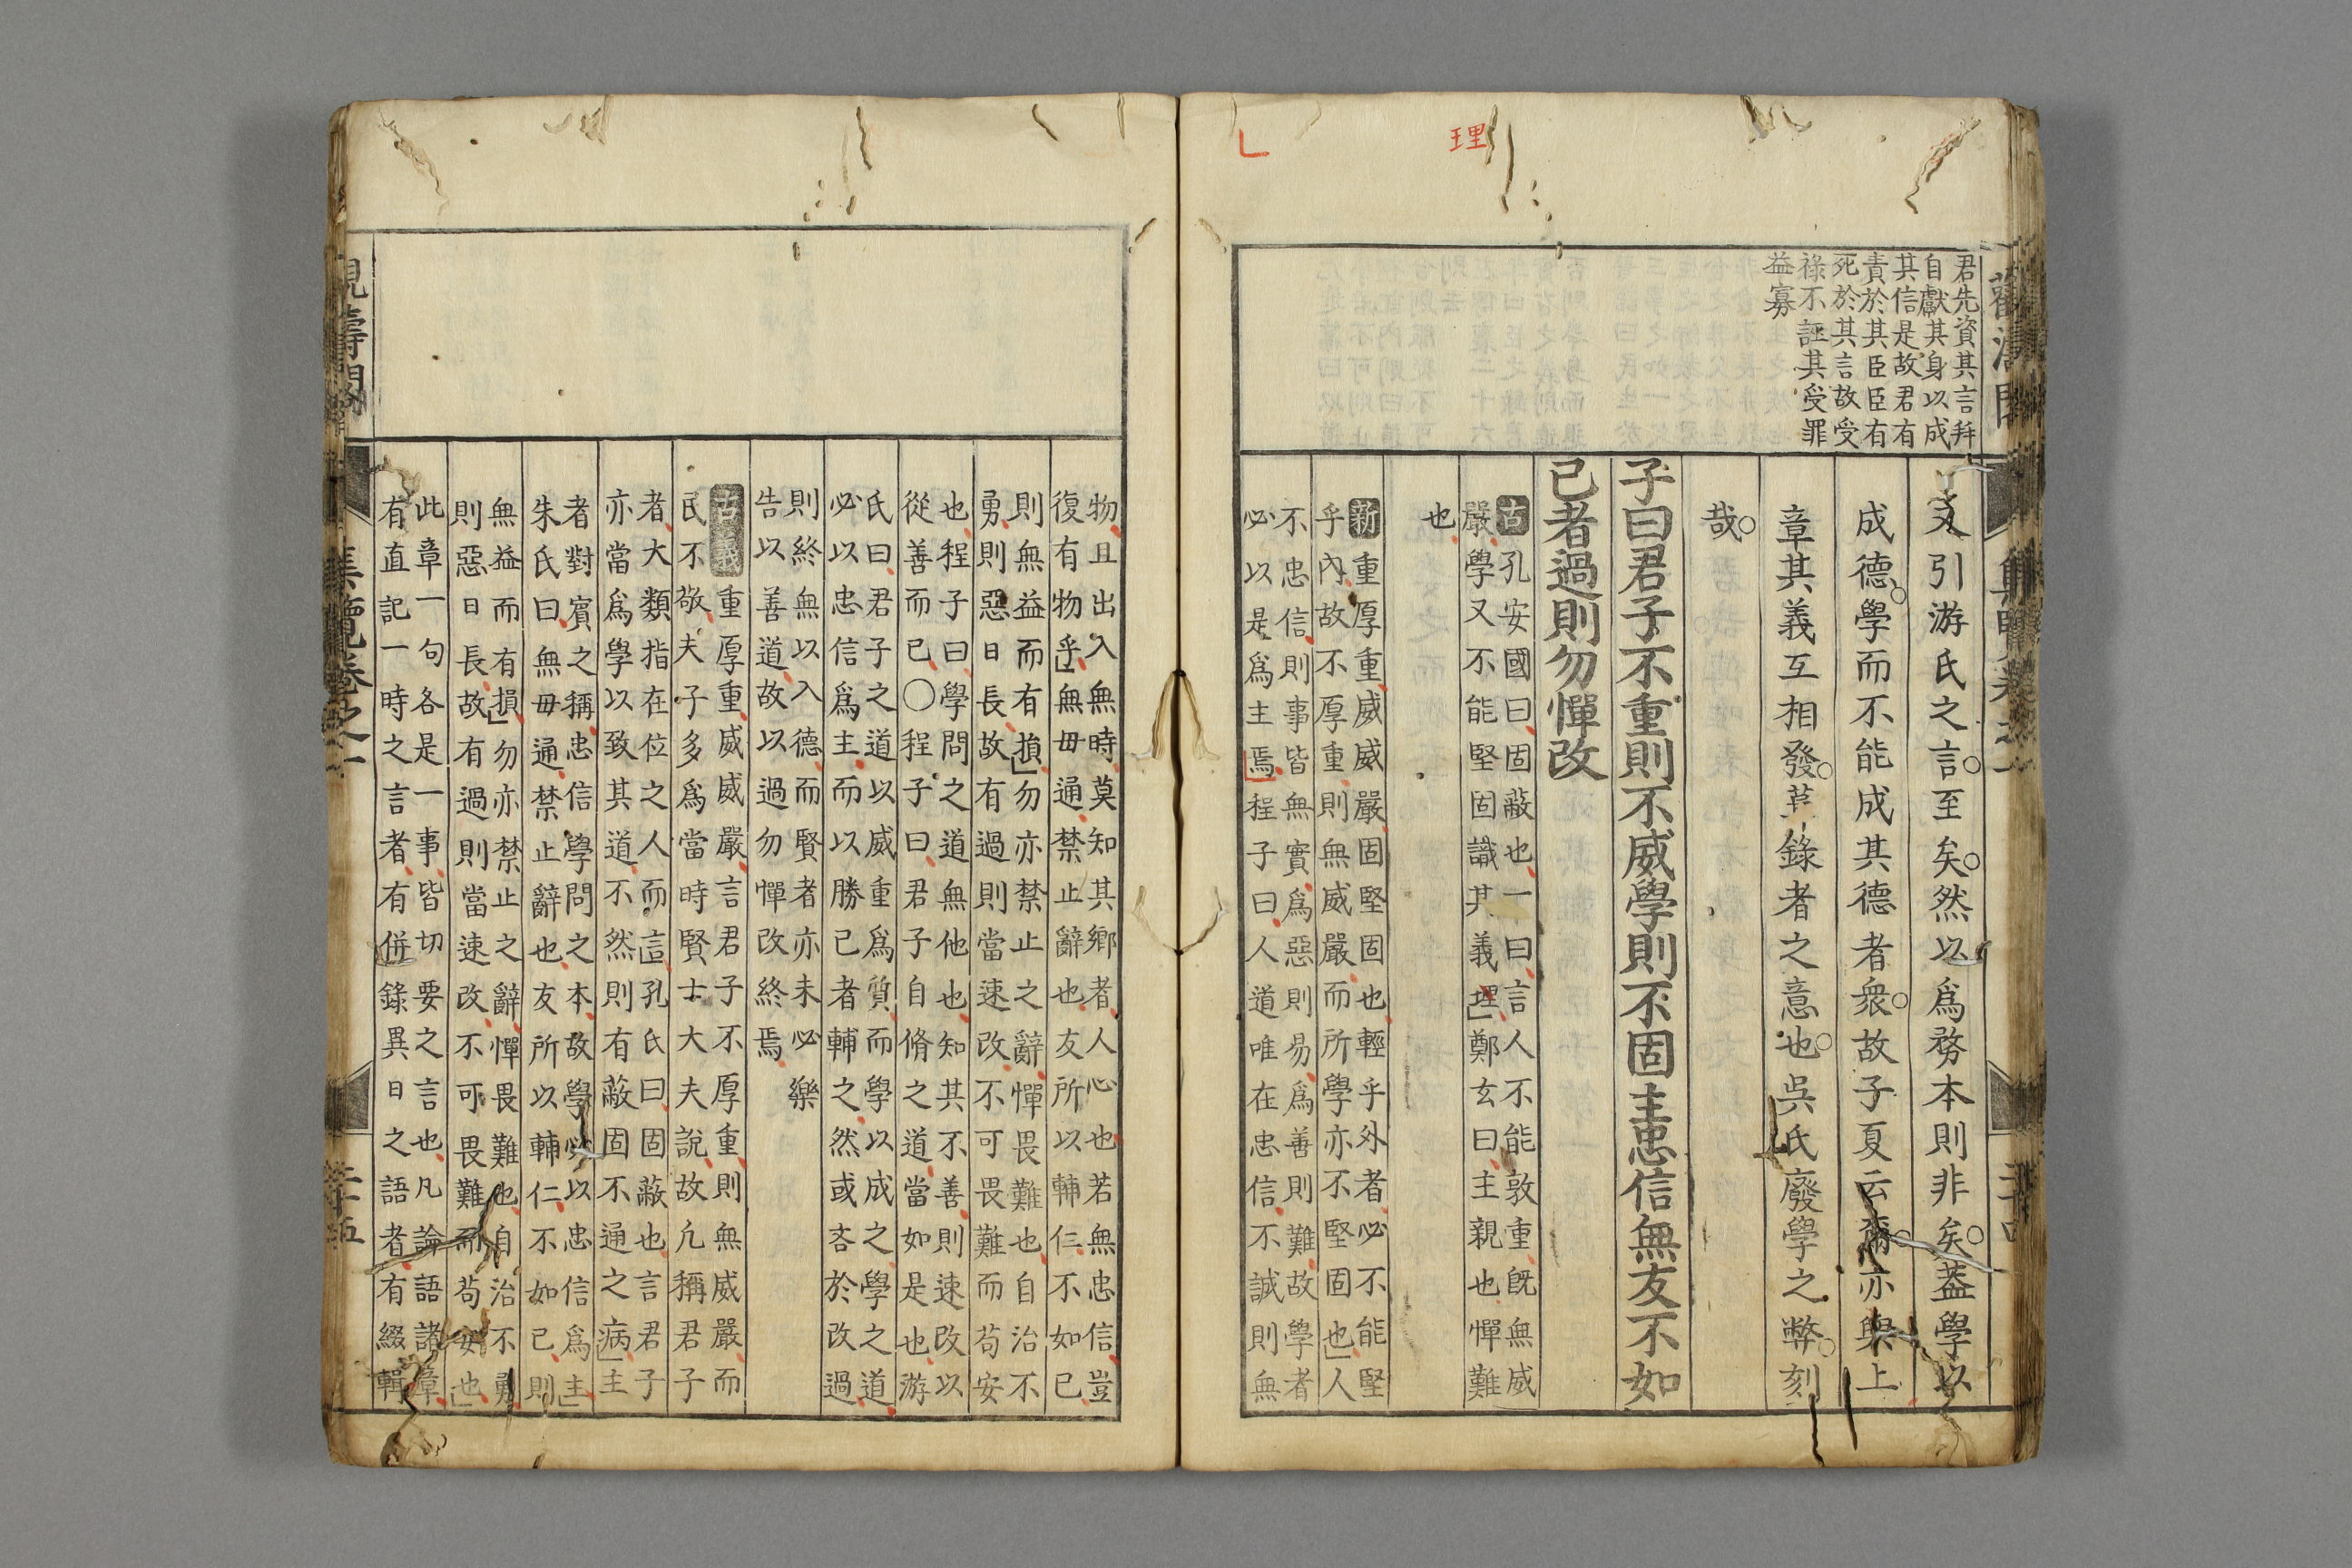 理
君先資其言拜
自獻其身以成
其信是故君有
責於其臣臣有
死於其言故受
祿不誣其受罪
益寡
又引游氏之言至矣然以爲務本則非矣蓋學以
成德學而不能成其德者衆故子夏云爾亦與上
章其義互相發 錄者之意也吳氏廢學之弊刻
哉
子曰君子不重則不威學則不固主忠信無友不如
己者過則勿憚改
古孔安國曰固蔽也一曰言人不能敦重既無威
嚴學又不能堅固識其義理鄭玄曰主親也憚難
也
新重厚重威威嚴固堅固也輕乎外者必不能堅
乎內故不厚重則無威嚴而所學亦不堅固也人
不忠信則事皆無實爲惡則易爲善則難故學者
必以是爲主焉程子曰人道唯在忠信不誠則無
物且出入無時莫知其鄉者人心也若無忠信豈
復有物乎無毋通禁止辭也友所以輔仁不如己
則無益而有損勿亦禁止之辭憚畏難也自治不
勇則惡日長故有過則當速改不可畏難而苟安
也程子曰學問之道無他也知其不善則速改以
從善而已〇程子曰君子自脩之道當如是也游
氏曰君子之道以威重爲質而學以成之學之道
必以忠信爲主而以勝己者輔之然或吝於改過
則終無以入德而賢者亦未必樂
告以善道故以過勿憚改終焉
古義重厚重威威嚴言君子不厚重則無威嚴而
民不敬夫子多爲當時賢士大夫說故凡稱君子
者大類指在位之人而言孔氏曰固蔽也言君子
亦當爲學以致其道不然則有蔽固不通之病主
者對賓之稱忠信學問之本故學必以忠信爲主
朱氏曰無毋通禁止辭也友所以輔仁不如己則
無益而有損勿亦禁止之辭憚畏難也自治不勇
則惡日長故有過則當速改不可畏難而苟安也
此章一句各是一事皆切要之言也凡論語諸章
有直記一時之言者有併錄異日之語者有綴輯
觀濤閣
集覽卷之一
二十五